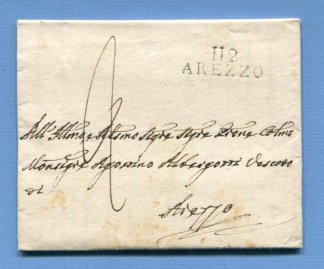 112
AREZZO
All' Illmo e Rdmo Sigre Sigre Prone Colmo
Monsigre Agostino Albergotti Vescovo
di
Arezzo